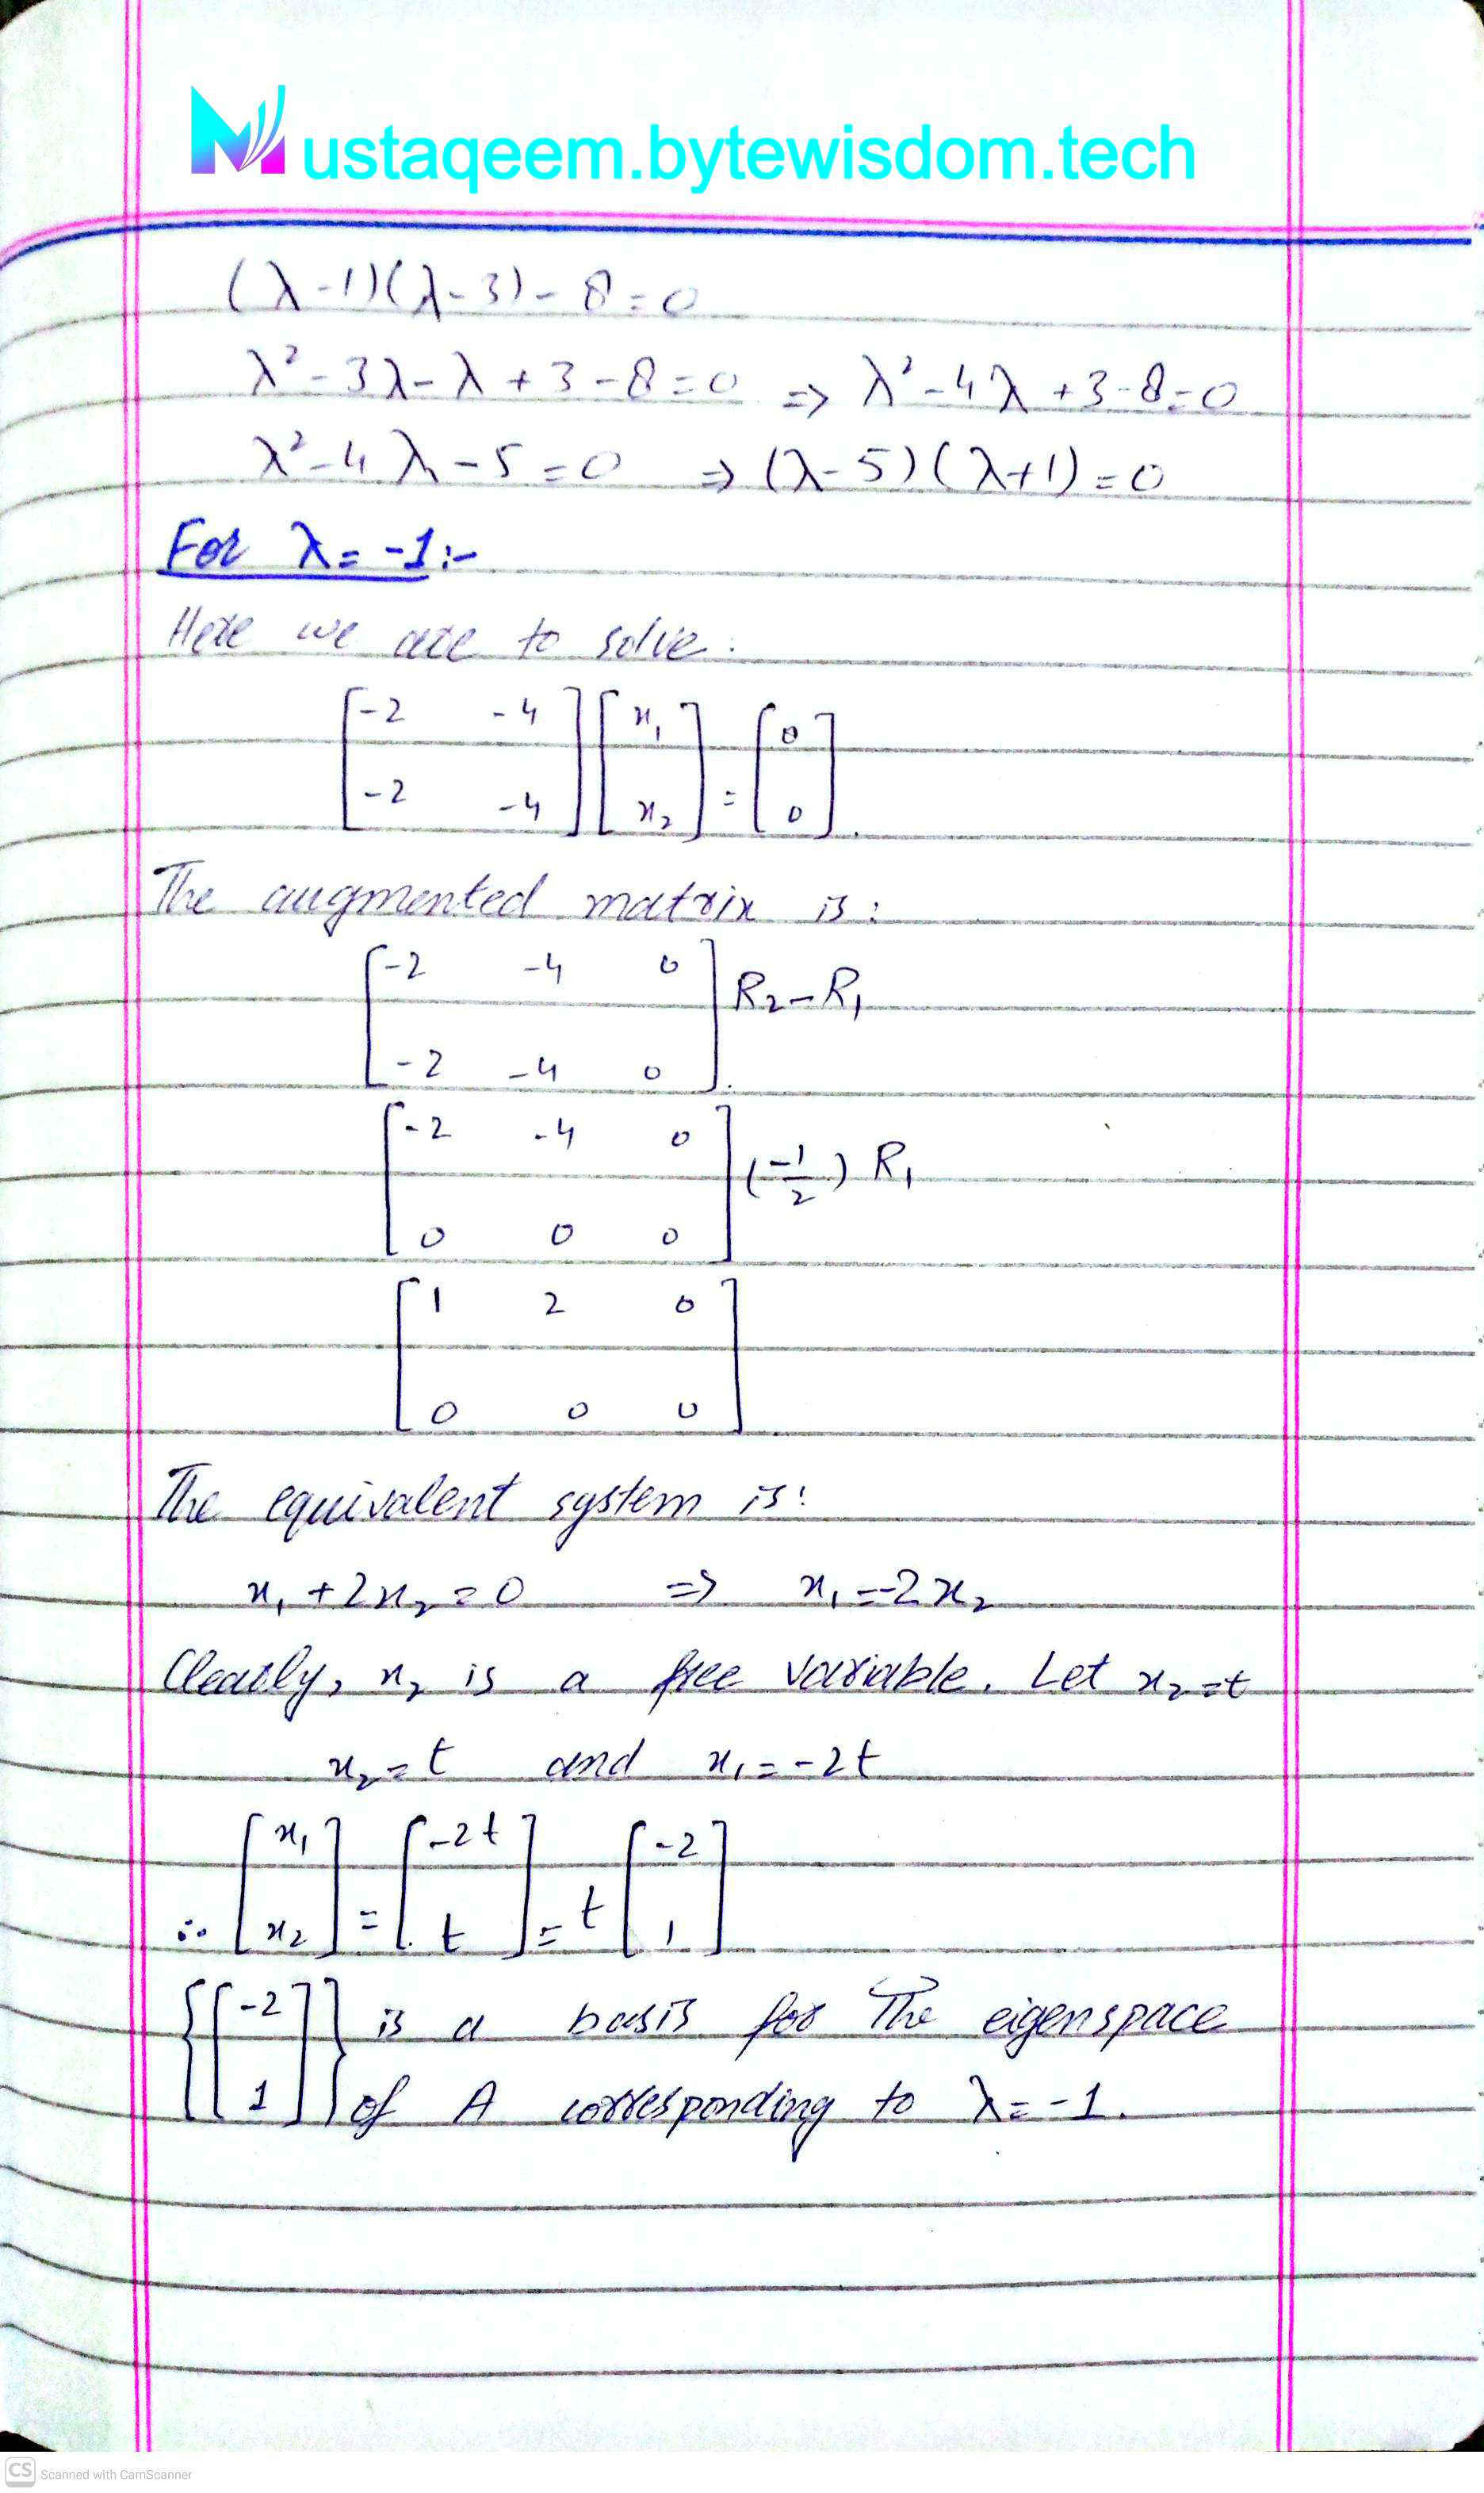 Mustaqeem.bytewisdom.tech
(λ-1)(λ-3)-8=0
λ²-3λ-λ+3-8=0 ⇒ λ²-4λ+3-8=0
λ²-4λ-5=0 ⇒ (λ-5)(λ+1)=0
For λ=-1:-
Here we are to solve:
[-2 -4] [x₁] [0]
[-2 -4] [x₂] = [0].
The augmented matrix is:
[-2 -4 0] R₂-R₁
[-2 -4 0].
[-2 -4 0] (-1/2) R₁
[0 0 0]
[1 2 0]
[0 0 0]
The equivalent system is:
x₁+2x₂=0 ⇒ x₁=-2x₂
Clearly, x₂ is a free variable. Let x₂=t
x₂=t and x₁=-2t
[x₁] [-2t] [-2]
∴ [x₂] = [t] = t [1]
{[-2 1]} is a basis for The eigenspace
of A corresponding to λ=-1.
CS Scanned with CamScanner